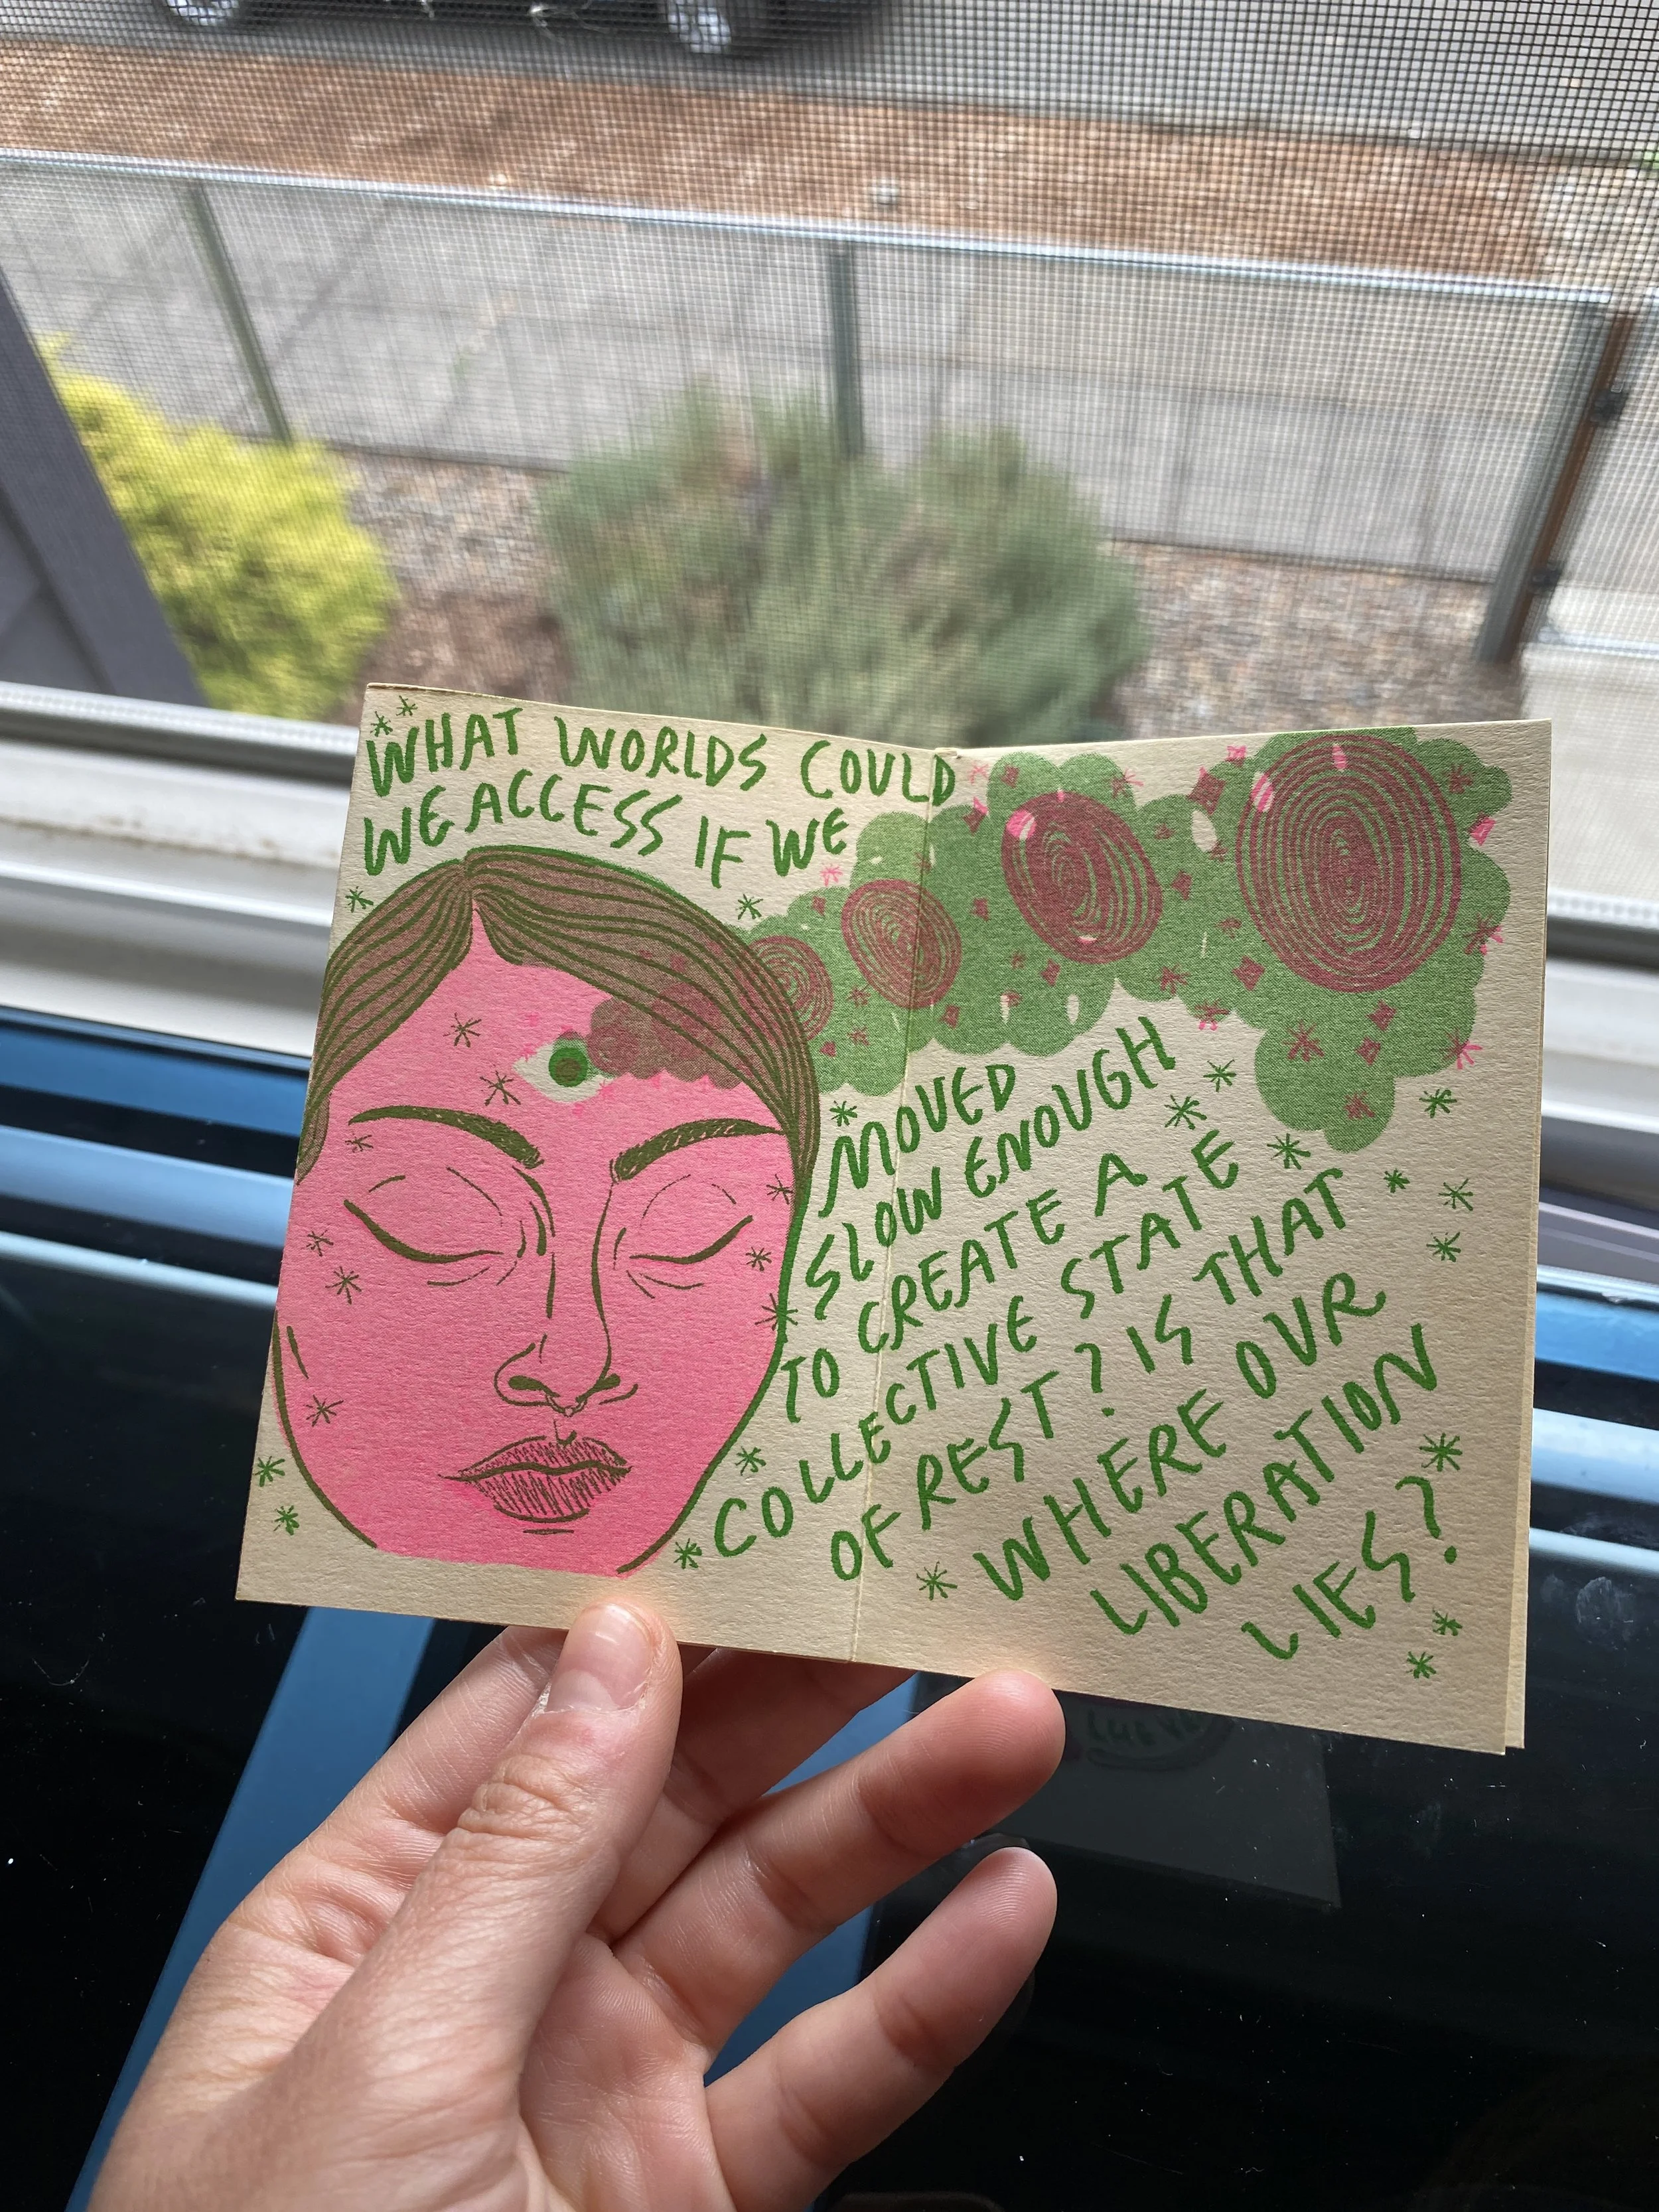 WHAT WORLDS COULD
WE ACCESS IF WE
MOVED
SLOW ENOUGH
TO CREATE A
COLLECTIVE STATE
OF REST? IS THAT
WHERE OUR
LIBERATION
LIES?